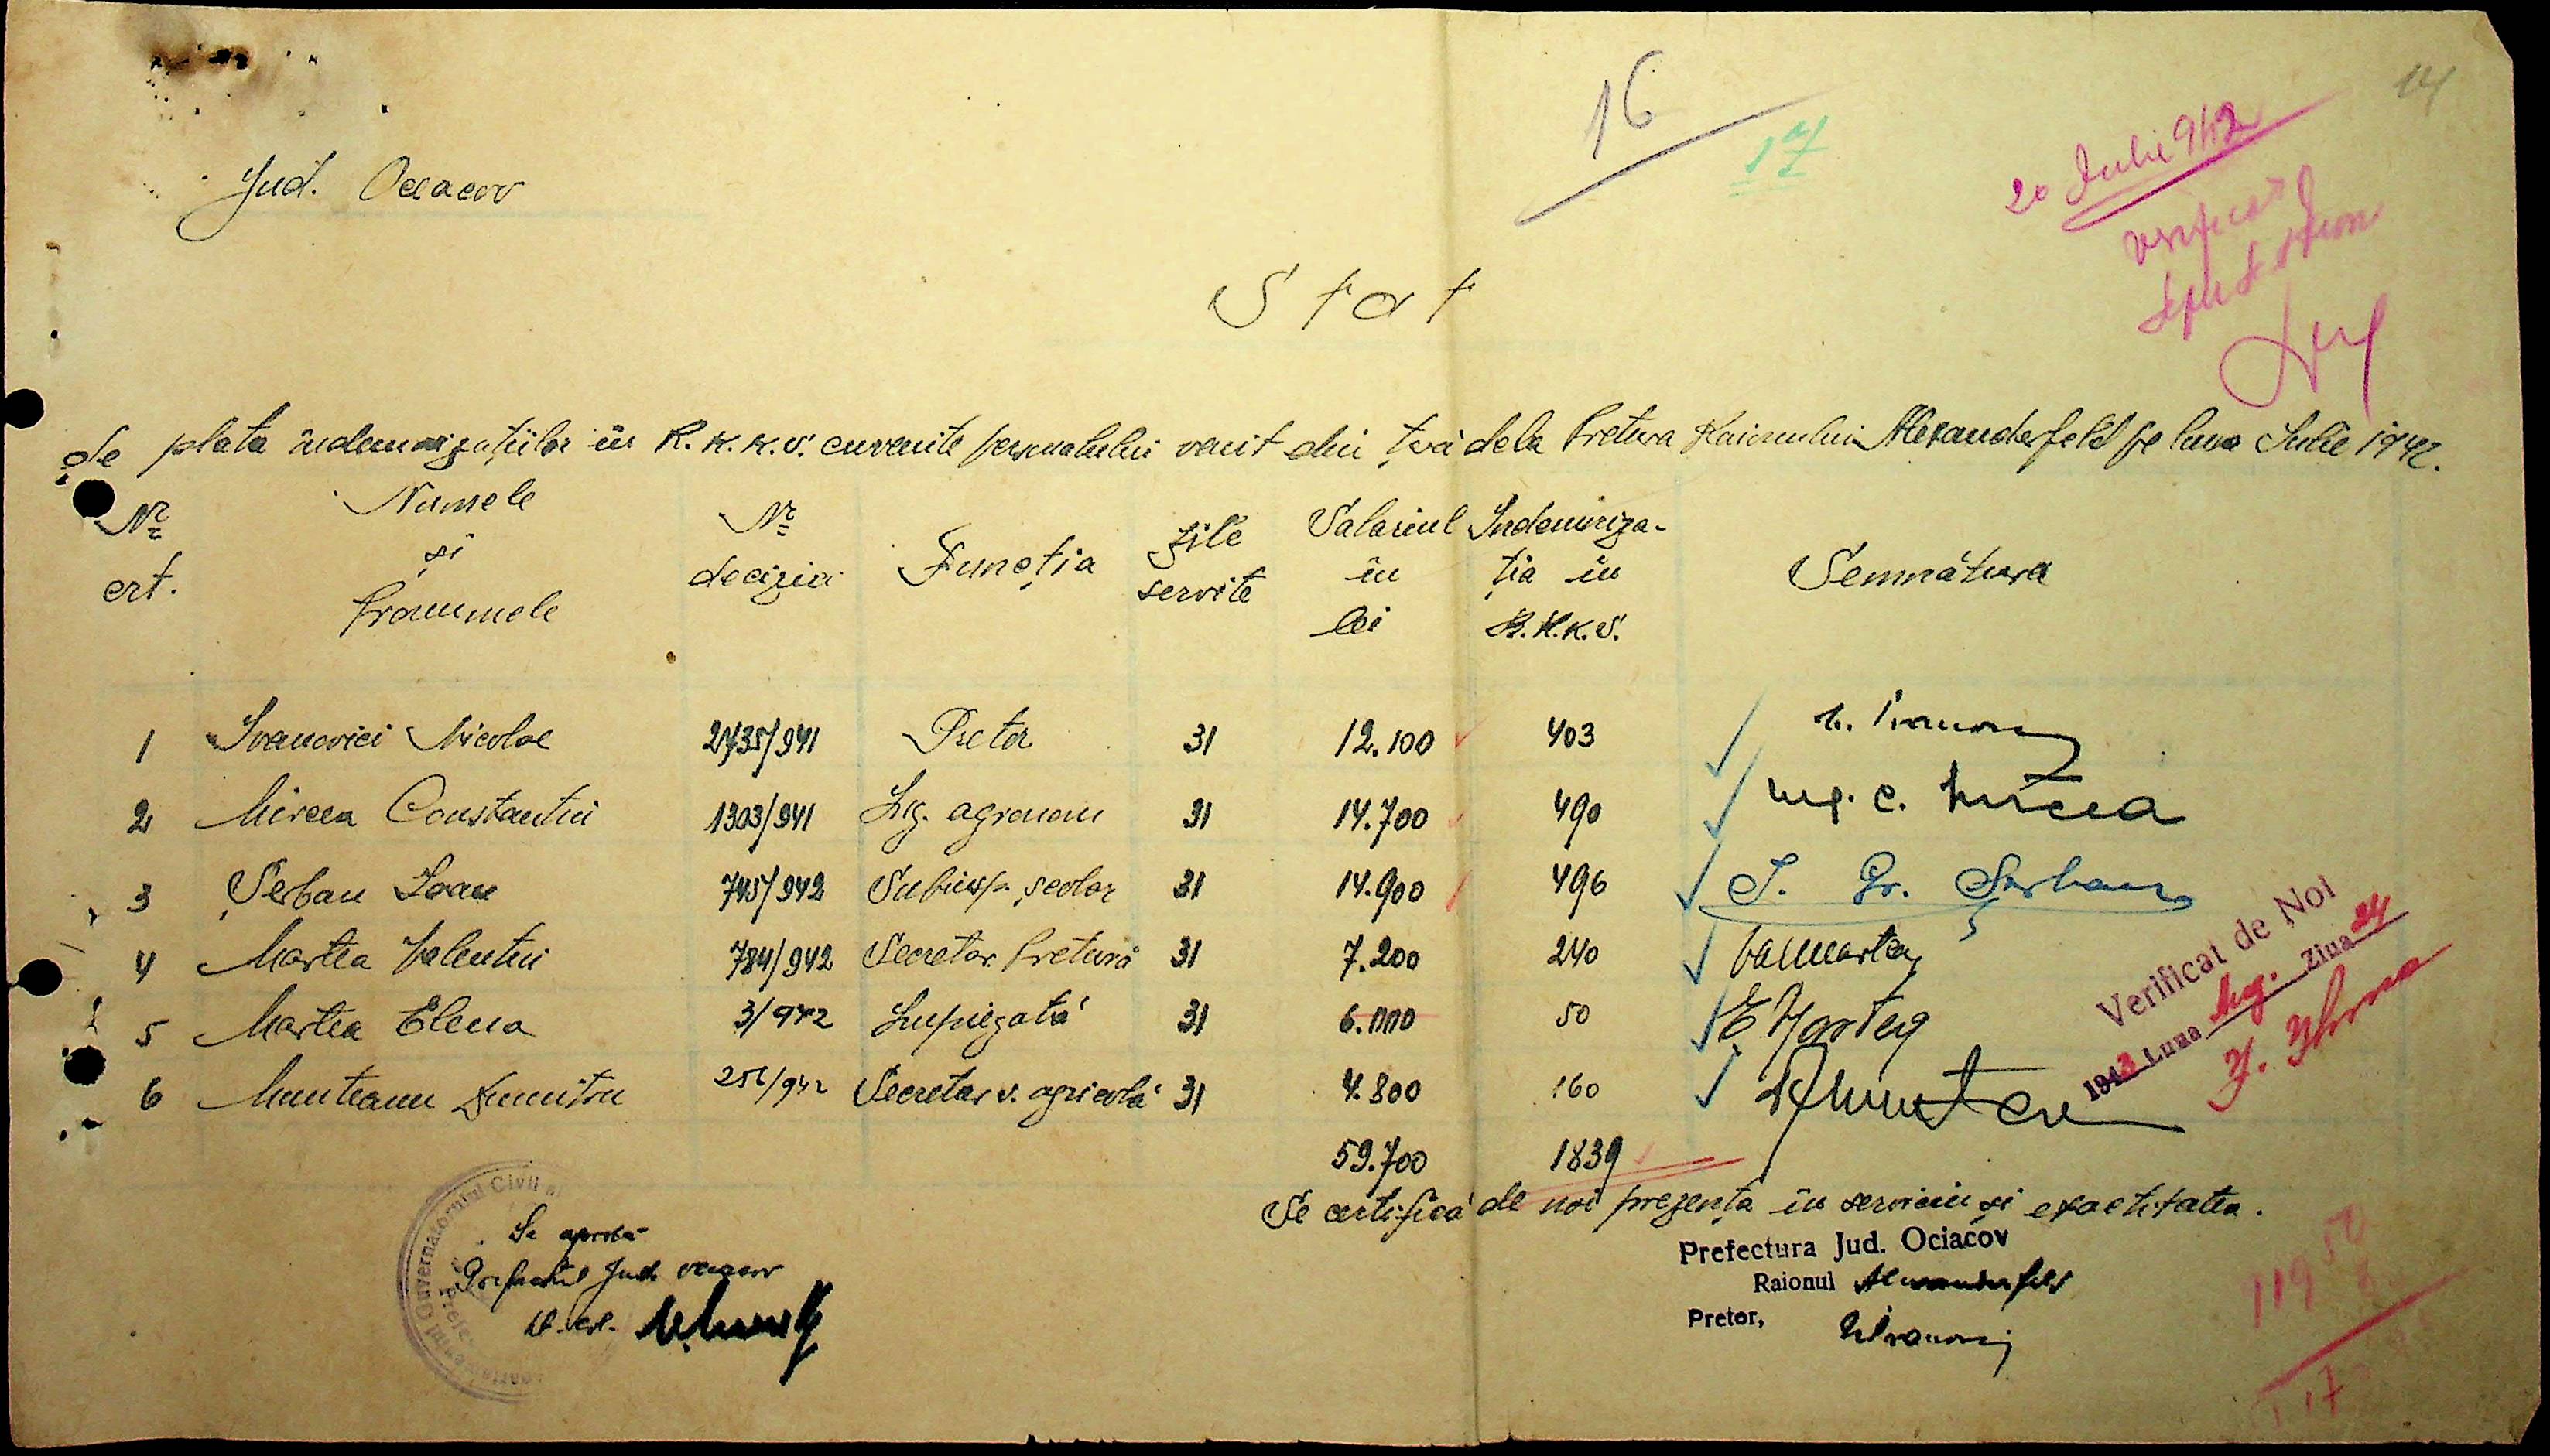 14
16
17
20 Iulie 942
Verificat
Jud. Oceacov
Stat
de plata indemnizațiilor în R.K.K.S. cuvenite personalului venit din țară dela Pretura Raionului Alexanderfeld pe luna Iulie 1942.
Nr crt. Numele și Pronumele Nr deciziei Funcția Zile servite Salariul în lei Indemniza-ția în R.K.K.S. Semnătura
1 Ivanovici Nicolae 2435/941 Pretor 31 12.100 403
2 Mircea Constantin 1303/941 Ing. agronom 31 14.700 490 Ing. C. Mircea
3 Șerban Ioan 745/942 Subinsp. școlar 31 14.900 496 I. Gr. Șerban
4 Martea Valentin 784/942 Secretar Pretură 31 7.200 240 Val Martea
5 Martea Elena 3/942 Impiegată 31 6.000 50 E. Martea
6 Munteanu Dumitru 256/942 Secretar v. agricolă 31 4.800 160
59.700 1839
Verificat de Noi
1943 Luna Aug. Ziua 24
Se certifică de noi prezența în serviciu și exactitatea.
Se aprobă
Prefectul Jud. Oceacov
Prefectura Jud. Ociacov
Raionul Alexanderfeld
Pretor,